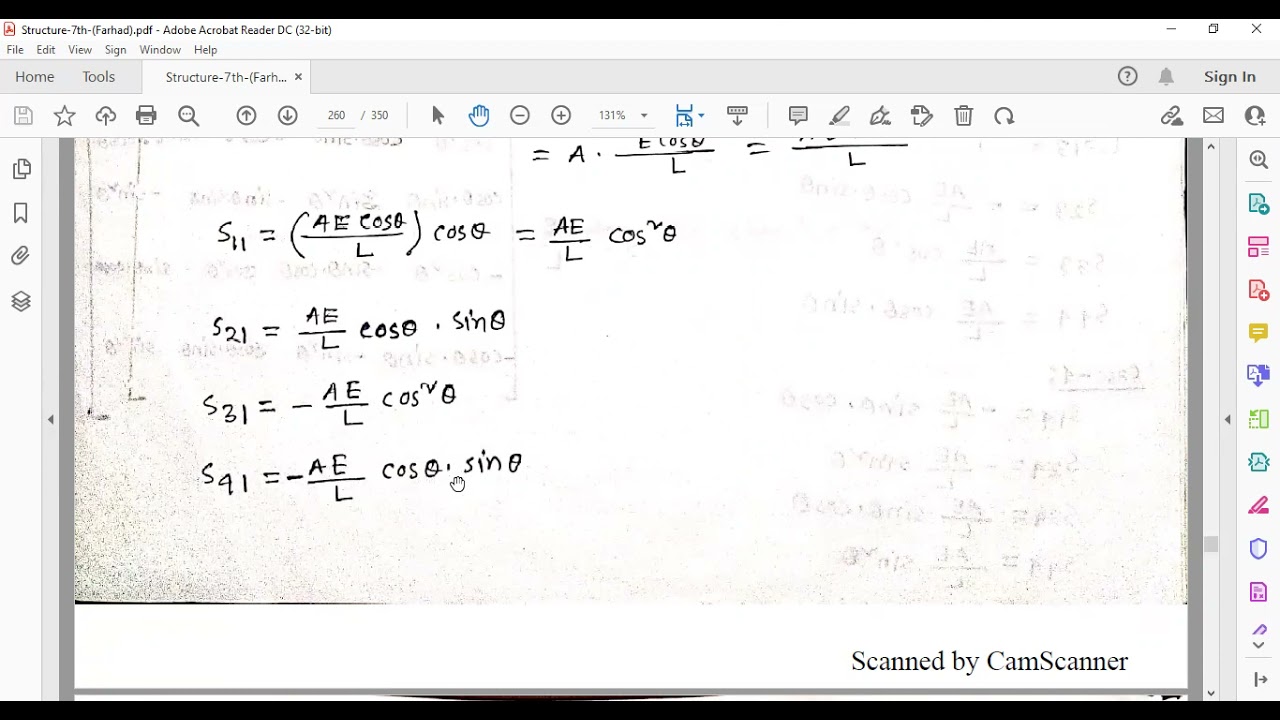 Structure-7th-(Farhad).pdf - Adobe Acrobat Reader DC (32-bit)
File Edit View Sign Window Help
Home Tools Structure-7th-(Farh... × Sign In
260 / 350 131%
= A · E cosθ / L = / L
S11 = (AE cosθ / L) cosθ = AE/L cos²θ
S21 = AE/L cosθ . sinθ
S31 = - AE/L cos²θ
S41 = - AE/L cosθ . sinθ
Scanned by CamScanner